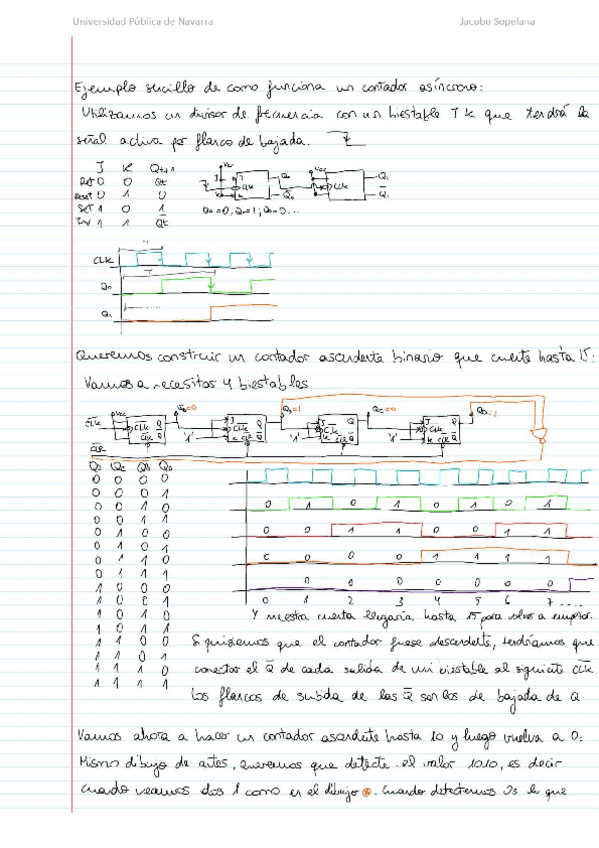 Universidad Pública de Navarra Jacobo Sopelana
Ejemplo sencillo de como funciona un contador asíncrono:
Utilizamos un divisor de frecuencia con un biestable JK que tendrá la
señal activa por flanco de bajada.
J K Qt+1
0 0 Qt
Reset 0 1 0
SET 1 0 1
1 1 Q̅t
Vcc J CLK K Q0 Q̅0 Vcc CLK Q1 Q̅1
Q0=0, Q0=1; Q0=0...
CLK
T
Q0
Q1
Queremos construir un contador ascendente binario que cuente hasta 15:
Vamos a necesitar 4 biestables
QB=1 QC=0 QD=1
CLK Vcc CLK Q CLR Q̅ '1' CLK Q CLR Q̅ '1' CLK Q CLR Q̅ '1' CLK Q CLR Q̅
QD QC QB QA
0 0 0 0
0 0 0 1
0 0 1 0
0 0 1 1
0 1 0 0
0 1 0 1
0 1 1 0
0 1 1 1
1 0 0 0
1 0 0 1
1 0 1 0
1 0 1 1
1 1 0 0
1 1 0 1
1 1 1 0
1 1 1 1
0 1 0 1 0 1 0 1
0 0 1 1 0 0 1 1
0 0 0 0 1 1 1 1
0 0 0 0 0 0 0
0 1 2 3 4 5 6 7 ....
Y nuestra cuenta llegaría hasta 15 para volver a empezar.
Si quisiéramos que el contador fuese descendente, tendríamos que
conectar el Q̅ de cada salida de un biestable al siguiente C̅L̅K̅
Los flancos de subida de las Q̅ son los de bajada de Q
Vamos ahora a hacer un contador ascendente hasta 10 y luego vuelva a 0:
Mismo dibujo de antes, queremos que detecte el valor 1010, es decir
cuando veamos dos 1 como en el dibujo. Cuando detectemos lo que